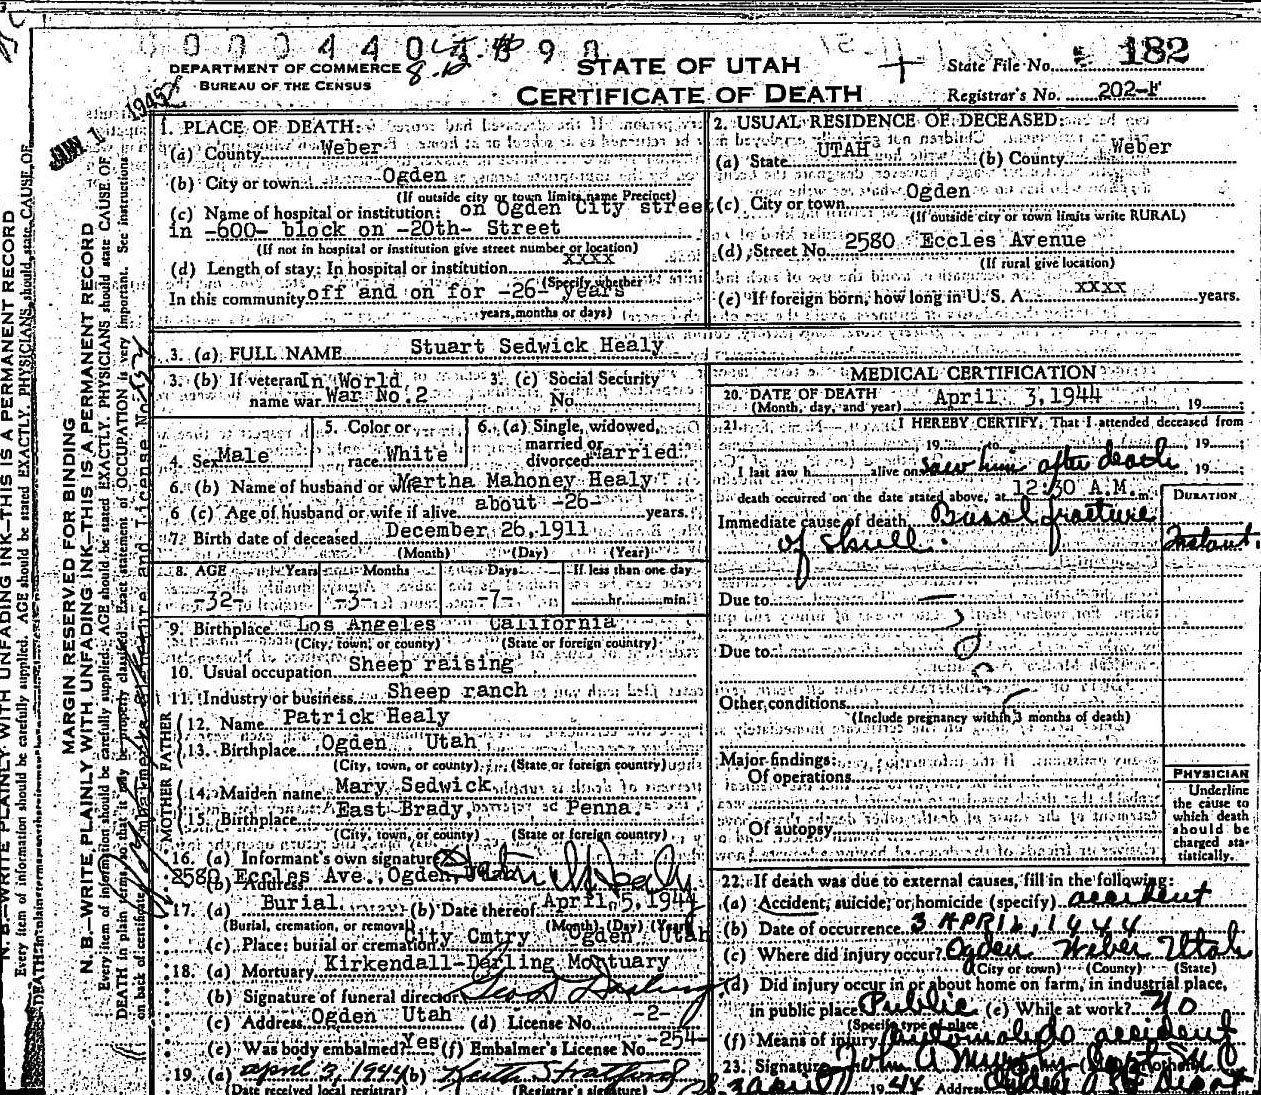 STATE OF UTAH
CERTIFICATE OF DEATH
DEPARTMENT OF COMMERCE
BUREAU OF THE CENSUS
State File No. 182
Registrar's No. 202-F
JUN 1 1945
N. B.—WRITE PLAINLY WITH UNFADING INK—THIS IS A PERMANENT RECORD
MARGIN RESERVED FOR BINDING
1. PLACE OF DEATH:
(a) County Weber
(b) City or town Ogden
(If outside city or town limits name Precinct)
(c) Name of hospital or institution: on Ogden City street
in -600- block on -20th- Street
(If not in hospital or institution give street number or location)
(d) Length of stay: In hospital or institution xxxx
(Specify whether
In this community off and on for -26- years
years, months or days)
2. USUAL RESIDENCE OF DECEASED:
(a) State UTAH (b) County Weber
(c) City or town Ogden
(If outside city or town limits write RURAL)
(d) Street No. 2580 Eccles Avenue
(If rural give location)
(e) If foreign born, how long in U. S. A. xxxx years.
3. (a) FULL NAME Stuart Sedwick Healy
3. (b) If veteran In World 3. (c) Social Security
name war War No.2 No.
4. Sex Male 5. Color or race White 6. (a) Single, widowed, married or divorced Married
6. (b) Name of husband or wife Martha Mahoney Healy
6 (c) Age of husband or wife if alive about -26- years.
7. Birth date of deceased December 26,1911
(Month) (Day) (Year)
8. AGE Years Months Days If less than one day
-32- -3- -7- hr. min.
9. Birthplace Los Angeles California
(City, town, or county) (State or foreign country)
10. Usual occupation Sheep raising
11. Industry or business Sheep ranch
FATHER
12. Name Patrick Healy
13. Birthplace Ogden Utah
(City, town, or county) (State or foreign country)
MOTHER
14. Maiden name Mary Sedwick
15. Birthplace East Brady, Penna.
(City, town, or county) (State or foreign country)
16. (a) Informant's own signature
(b) Address 2580 Eccles Ave., Ogden, Utah
17. (a) Burial (b) Date thereof April 5, 1944
(Burial, cremation, or removal) (Month) (Day) (Year)
(c) Place: burial or cremation City Cmtry Ogden Utah
18. (a) Mortuary Kirkendall-Darling Mortuary
(b) Signature of funeral director Geo D Darling
(c) Address Ogden Utah (d) License No. -2-
(e) Was body embalmed? Yes (f) Embalmer's License No. -254-
19. (a) April 3, 1944 (b) Keith Stratford
(Date received local registrar) (Registrar's signature)
MEDICAL CERTIFICATION
20. DATE OF DEATH
(Month, day, and year) April 3,1944 19
21. I HEREBY CERTIFY, That I attended deceased from
19 to 19
I last saw h alive on saw him after death 19
death occurred on the date stated above, at 12:30 A.M. m.
DURATION
Immediate cause of death Basal fracture
of skull. Instant.
Due to
Due to
Other conditions
(Include pregnancy within 3 months of death)
Major findings:
Of operations
Of autopsy
PHYSICIAN
Underline
the cause to
which death
should be
charged sta-
tistically.
22. If death was due to external causes, fill in the following:
(a) Accident, suicide, or homicide (specify) accident
(b) Date of occurrence 3 APRIL, 1944
(c) Where did injury occur? Ogden Weber Utah
(City or town) (County) (State)
(d) Did injury occur in or about home on farm, in industrial place,
in public place Public (e) While at work? No
(Specify type of place)
(f) Means of injury Automobile accident
23. Signature John A Murphy
3 April 1944 Address Ogden